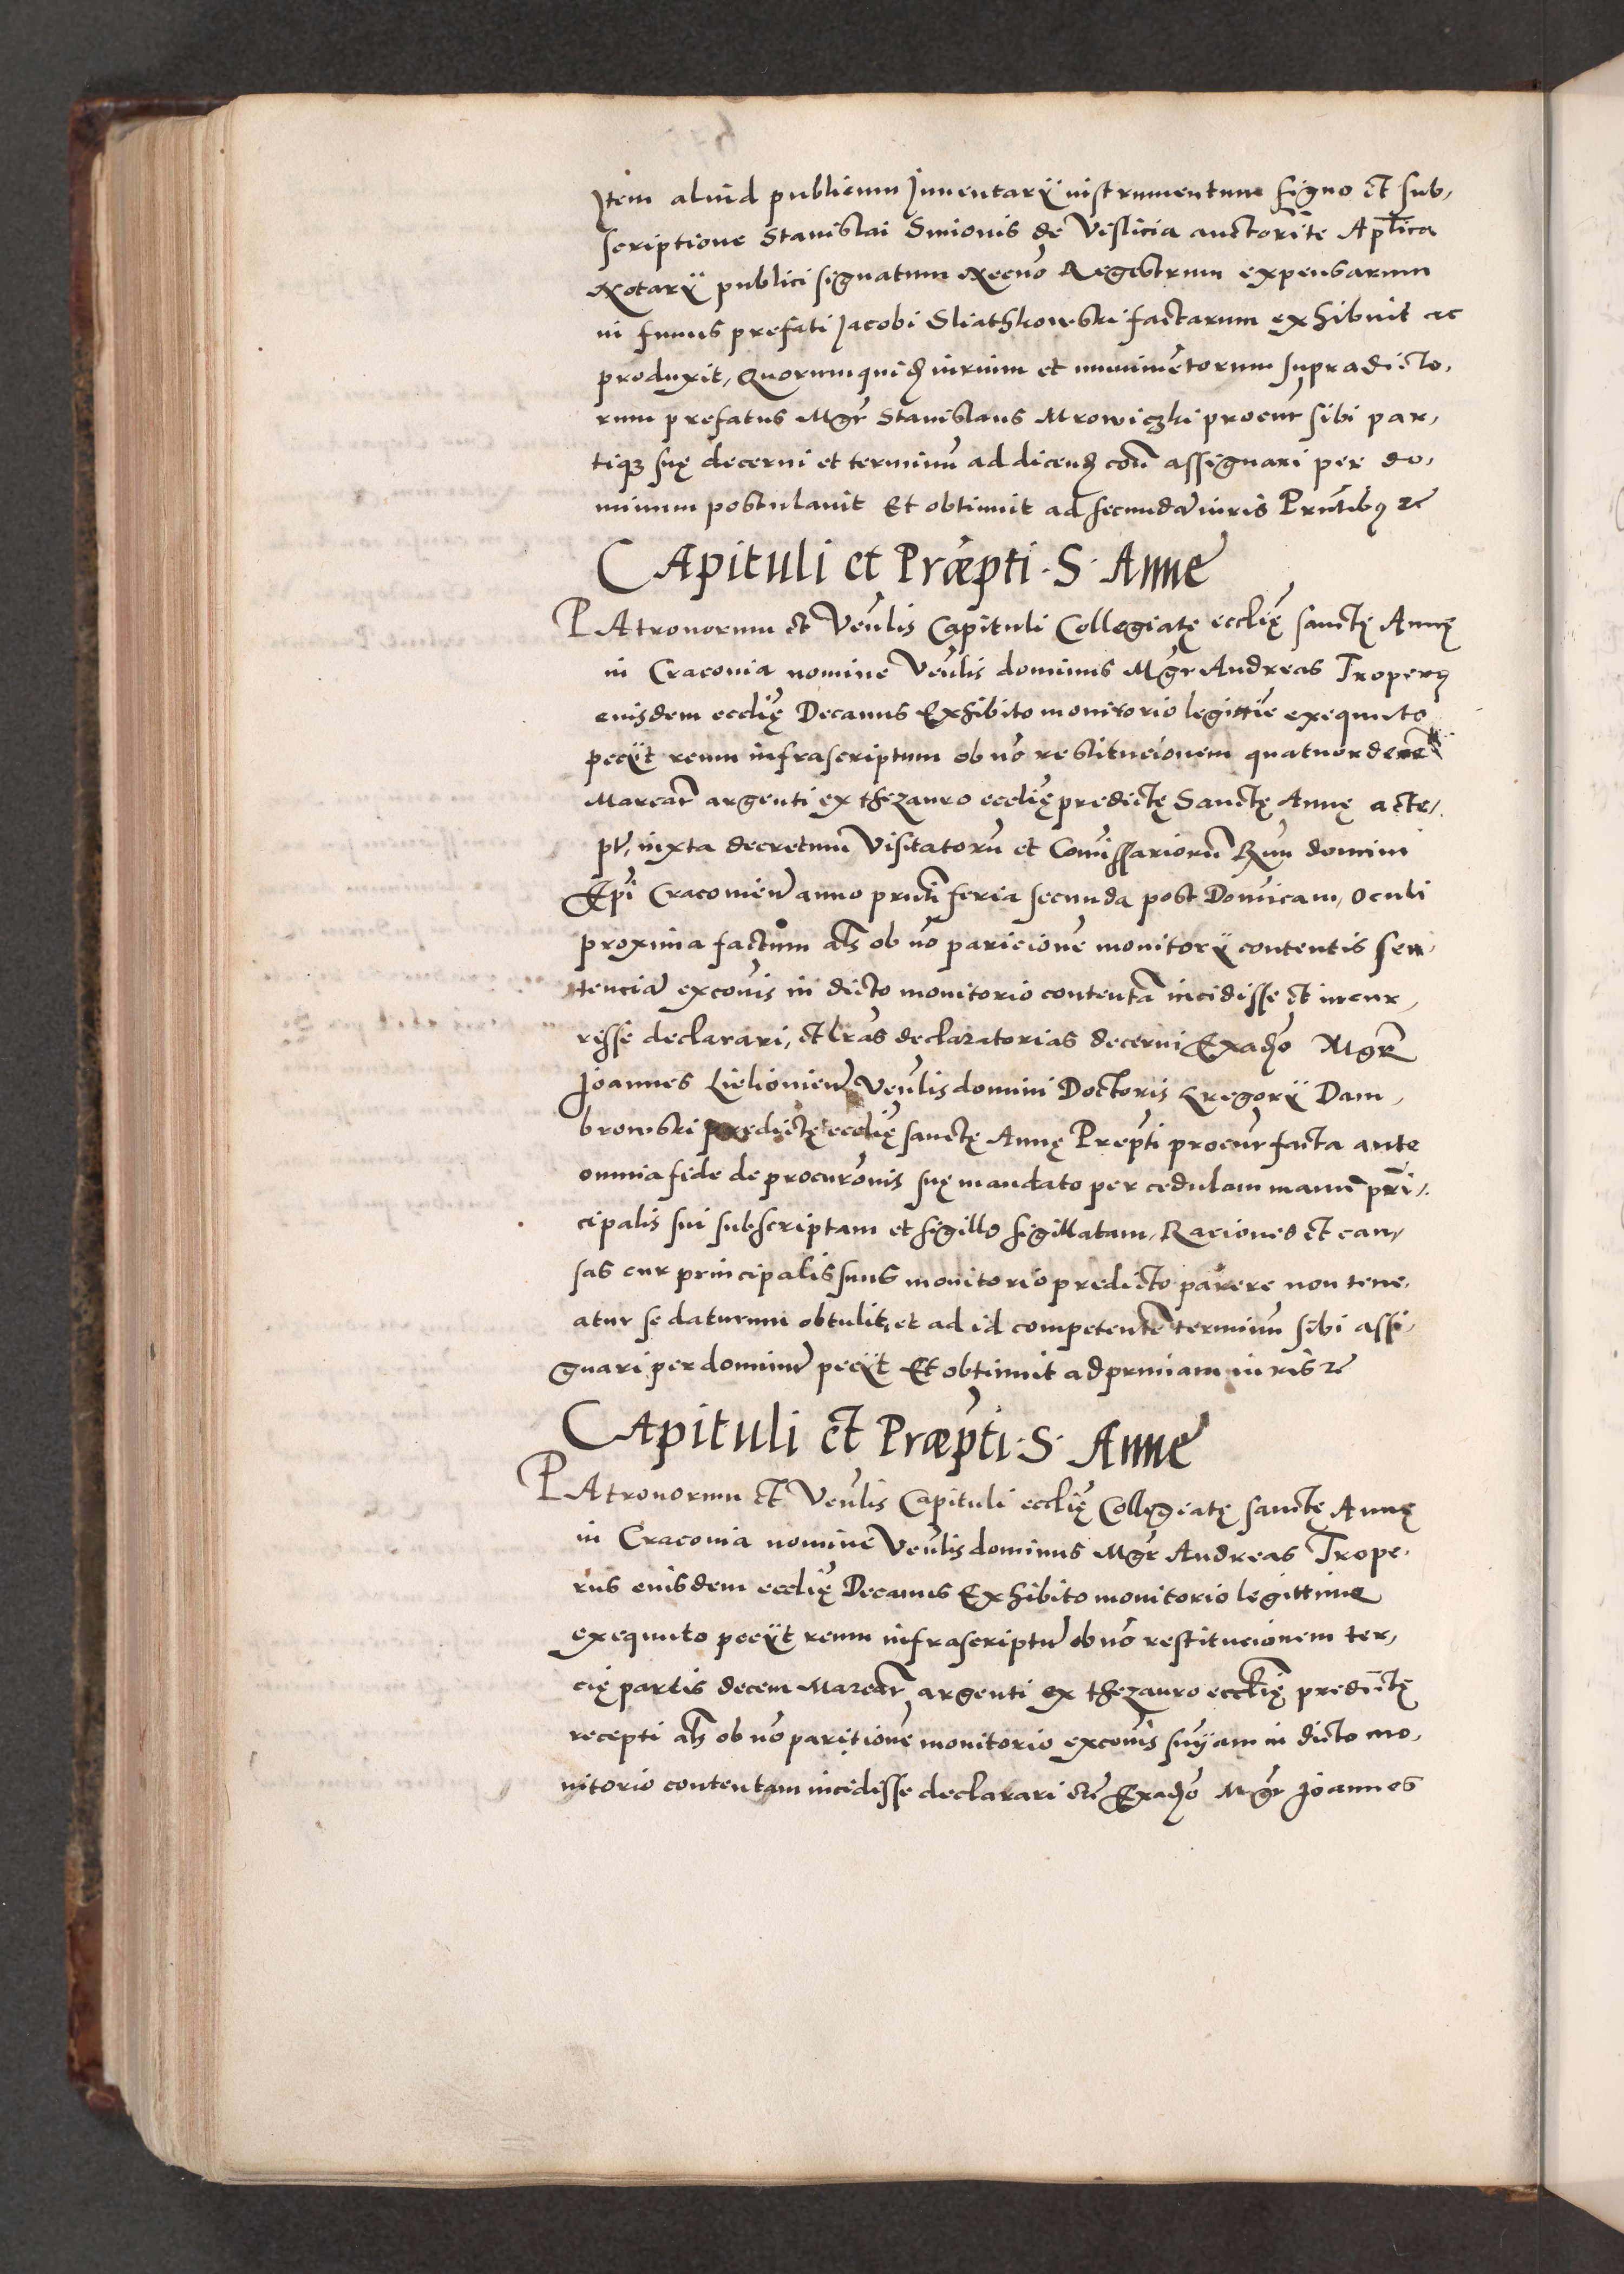 Item aliud publicum Inuentarÿ instrumentum signo et sub,
scriptione Stanislai Smionis de Vislicia auctorite Aplica
Notarÿ publici signatum Regestrum expensarum
in funus prefati Jacobi Sliathkowski factarum exhibuit ac
produxit, Quorumquid iurium et munimetorum supradicto,
rum prefatus Mgr Stanislaus Mrowiczki procur sibi par,
tiq suę decerni et terminu ad dicend con assignari per do,
minum postulauit Et obtinuit ad secunda iuris Prntibq &c
CApituli et Præpti . S . Anne
PAtronorum et Venlis Capituli Collegiatę ecclię sanctę Annę
in Cracouia nomine Venlis dominus Mgr Andreas Troperq
euisdem ecclię Decanus Exhibito monitorio legittie exequuto
peciit reum infrascriptum ob no restitucionem quatuordecem
Marcar argenti ex thezauro ecclię predictę Sanctę Annę acce,
pt, iuxta decretum Visitatoru et Comissarioru Rmi domini
Epi Cracouien anno prnti feria secunda post Domicam, Oculi
proxima factum als ob no paricione monitorÿ contentis sen,
tencia excois in dicto monitorio contenta incidisse et incur,
risse declarari, et lras declaratorias decerni Exadso Mgr
Joannes Lielionien Venlis domini Doctoris Gregorÿ Dam,
browski predictę ecclię sanctę Annę Prepti procur facta ante
omnia fide de procurōnis suę mandato per cedulam manu prin,
cipalis sui subscriptam et sigillo sigillatam, Raciones et cau,
sas cur principalis suus monitorio predicto parere non tene,
atur se daturum obtulit, et ad id competente terminum sibi assi,
gnari per dominu peciit Et obtinuit ad primam iuris &c
CApituli et Præpti . S . Anne
PAtronorum et Venlis Capituli ecclię Collegiatę sanctę Annę
in Cracouia nomine Venlis dominus Mgr Andreas Trope,
rus euisdem ecclię Decanus Exhibito monitorio legittime
exequuto peciit reum infrascriptu ob no restitucionem ter,
cię partis decem Marcar argenti ex thezauro ecclię predictę
recepti als ob no paritione monitorio excois snÿam in dicto mo,
nitorio contentam incidisse declarari etc Exadso Mgr Joannes